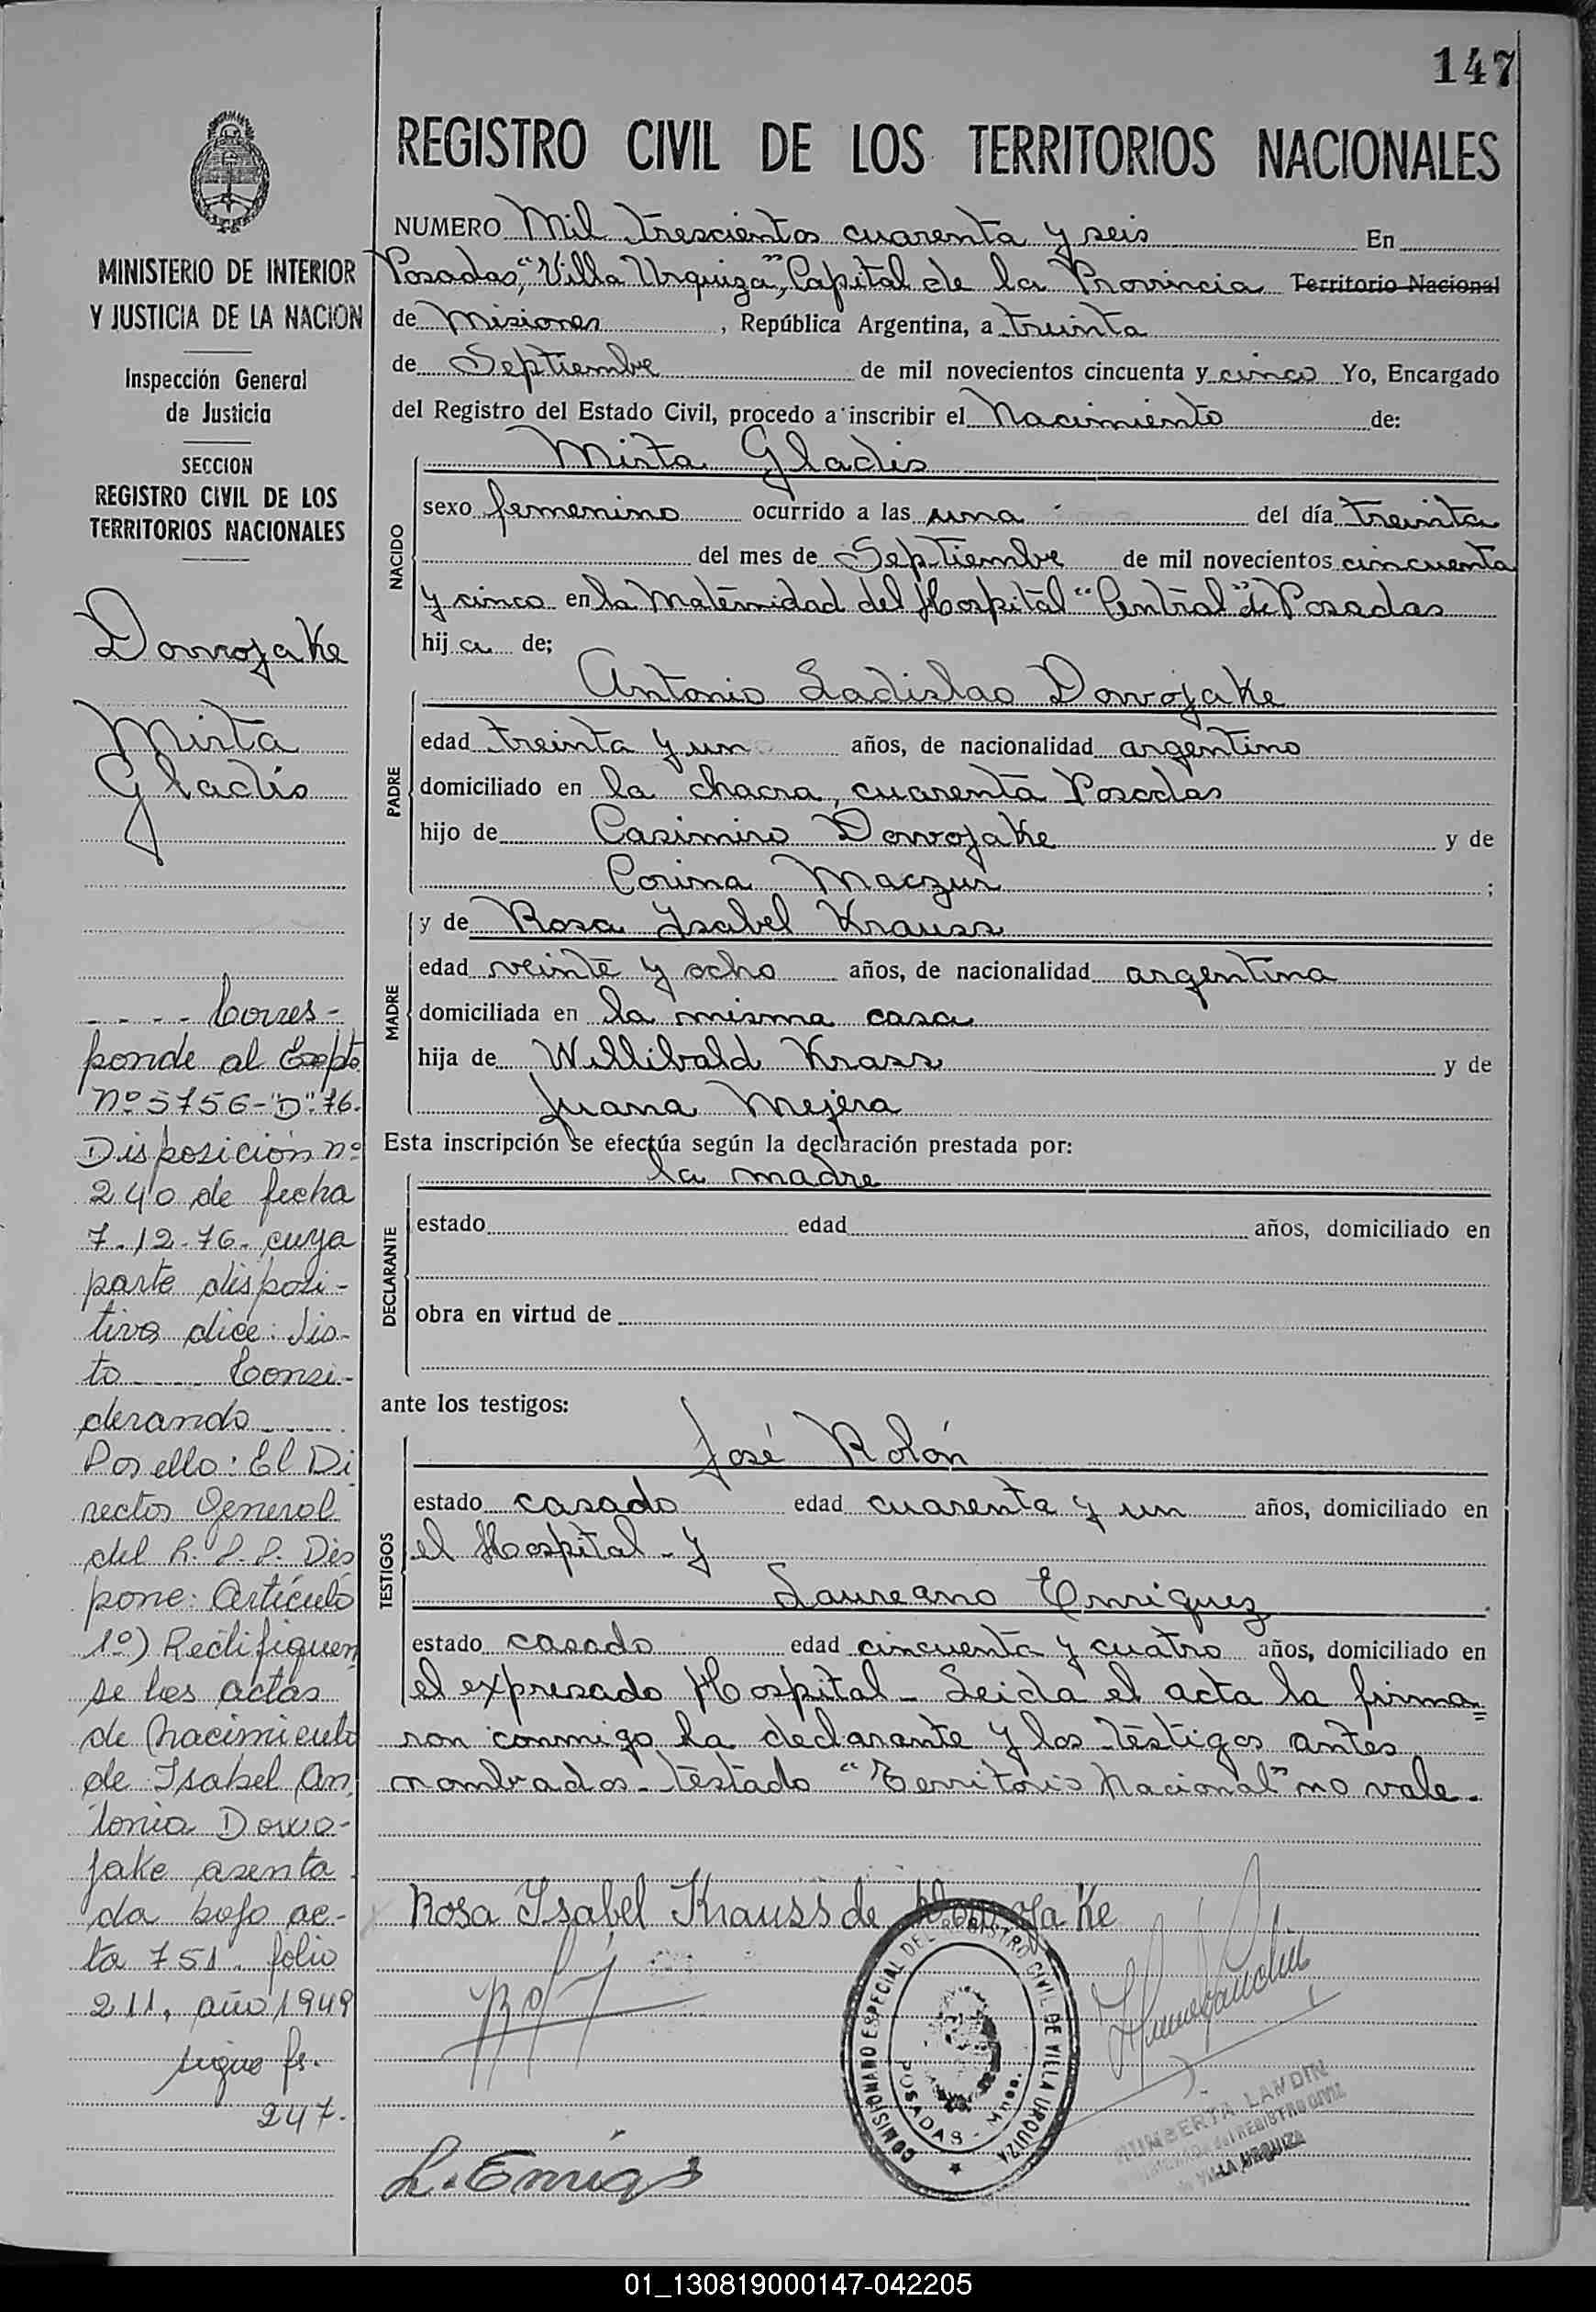 147
REGISTRO CIVIL DE LOS TERRITORIOS NACIONALES
MINISTERIO DE INTERIOR
Y JUSTICIA DE LA NACION
Inspección General
de Justicia
SECCION
REGISTRO CIVIL DE LOS
TERRITORIOS NACIONALES
Dowojake
Mirta
Gladis
- - - - Corres-
ponde al Expte
Nº 5756-"D".76.
Disposición nº
240 de fecha
7.12.76. cuya
parte disposi-
tiva dice: Vis-
to ---- Consi-
derando ----
Por ello: El Di
rector General
del R. P. P. Dis
pone: Artículo
1º) Rectifiquen
se las actas
de nacimiento
de Isabel An
tonia Dowo-
jake asenta
da bajo ac-
ta 751. folio
211. año 1949
sigue fs.
247.
NUMERO Mil trescientos cuarenta y seis En
Posadas, "Villa Urquiza", Capital de la Provincia Territorio Nacional
de Misiones, República Argentina, a treinta
de Septiembre de mil novecientos cincuenta y cinco Yo, Encargado
del Registro del Estado Civil, procedo a inscribir el Nacimiento de:
Mirta Gladis
NACIDO
sexo femenino ocurrido a las una del día treinta
del mes de Septiembre de mil novecientos cincuenta
y cinco en la Maternidad del Hospital "Central" de Posadas
hij a de;
Antonio Ladislao Dowojake
PADRE
edad treinta y un años, de nacionalidad argentino
domiciliado en la chacra, cuarenta Posadas
hijo de Casimiro Dowojake y de
Corina Maczur ;
y de Rosa Ysabel Krauss
MADRE
edad veinte y ocho años, de nacionalidad argentina
domiciliada en la misma casa
hija de Willibald Krass y de
Juana Mejera
Esta inscripción se efectúa según la declaración prestada por:
la madre
DECLARANTE
estado edad años, domiciliado en
obra en virtud de
ante los testigos:
José Rolón
TESTIGOS
estado casado edad cuarenta y un años, domiciliado en
el Hospital - y
Laureano Enriquez
estado casado edad cincuenta y cuatro años, domiciliado en
el expresado Hospital - Leida el acta la firma=
ron conmigo la declarante y los testigos antes
nombrados - Testado "Territorio Nacional" no vale.
Rosa Ysabel Krauss de Dowojake
COMISIONADO ESPECIAL DEL REGISTRO CIVIL DE VILLA URQUIZA
POSADAS - Mnes.
LANDIN
REGISTRO CIVIL
VILLA URQUIZA
01_130819000147-042205